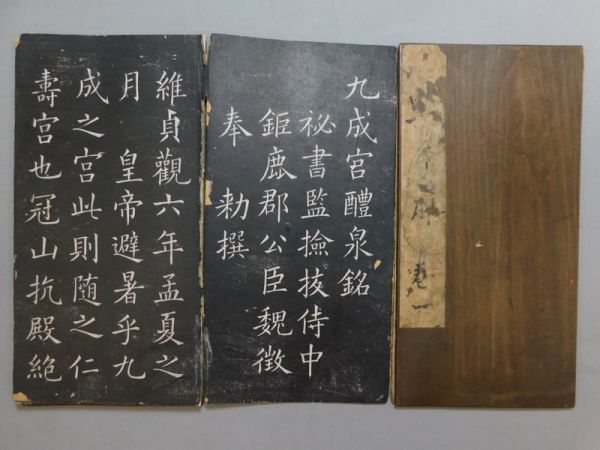 九成宮醴泉銘
祕書監撿挍侍中
鉅鹿郡公臣魏徵
奉 勅撰
維貞觀六年孟夏之
月 皇帝避暑乎九
成之宮此則随之仁
壽宮也冠山抗殿絶
卷一